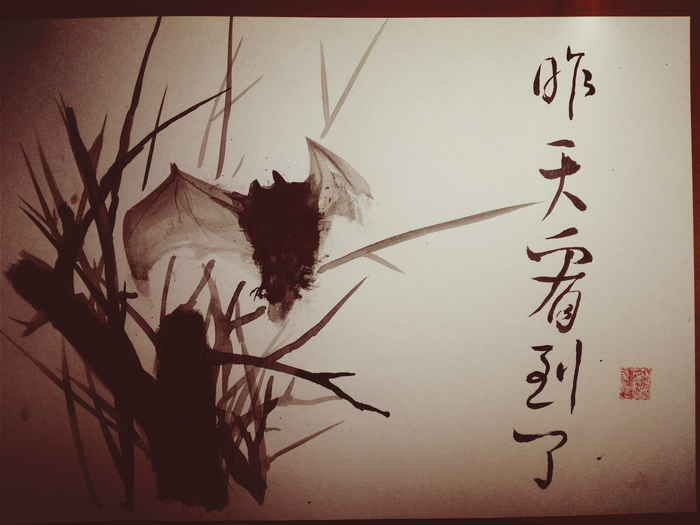 昨天看到了